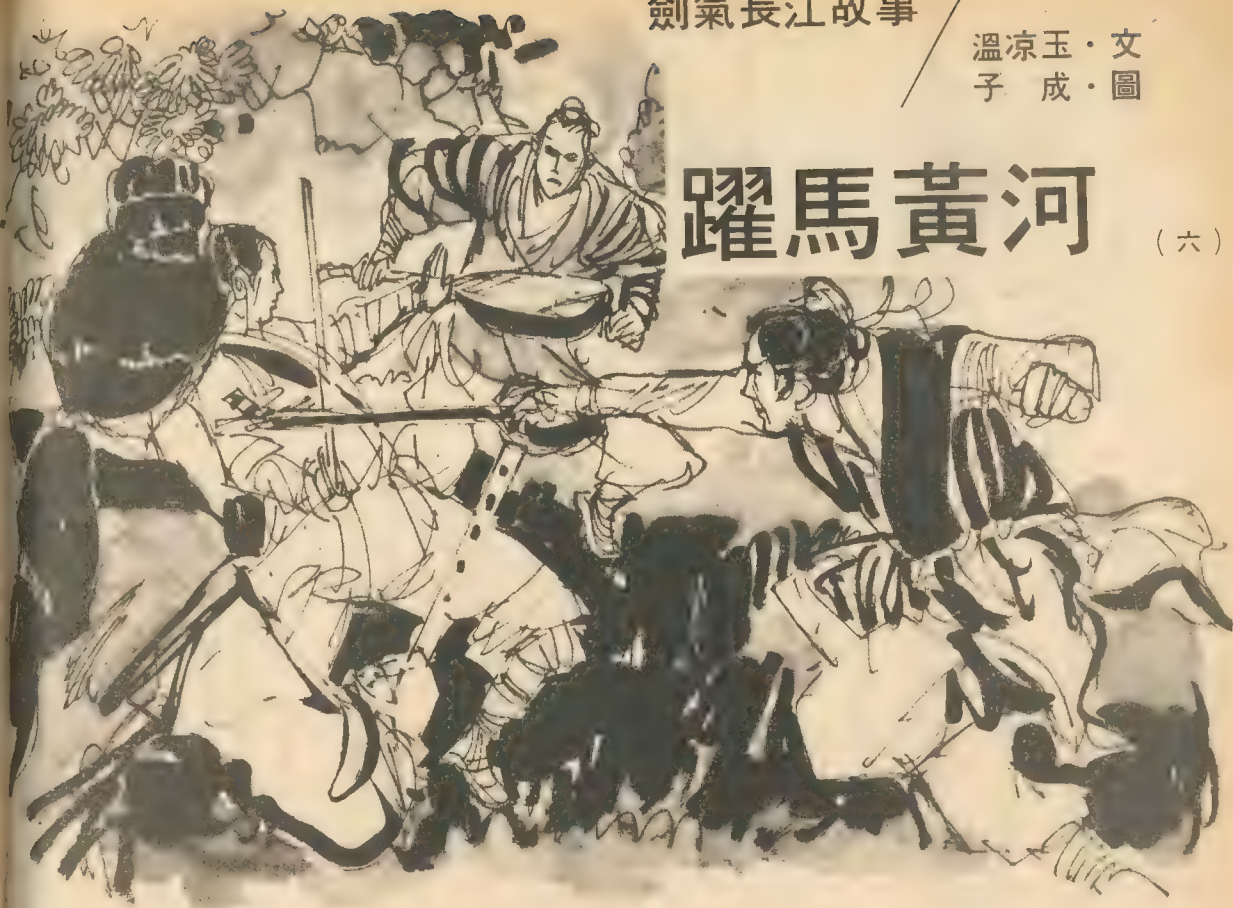 劍氣長江故事
溫凉玉・文
子成・圖
躍馬黃河
（六）